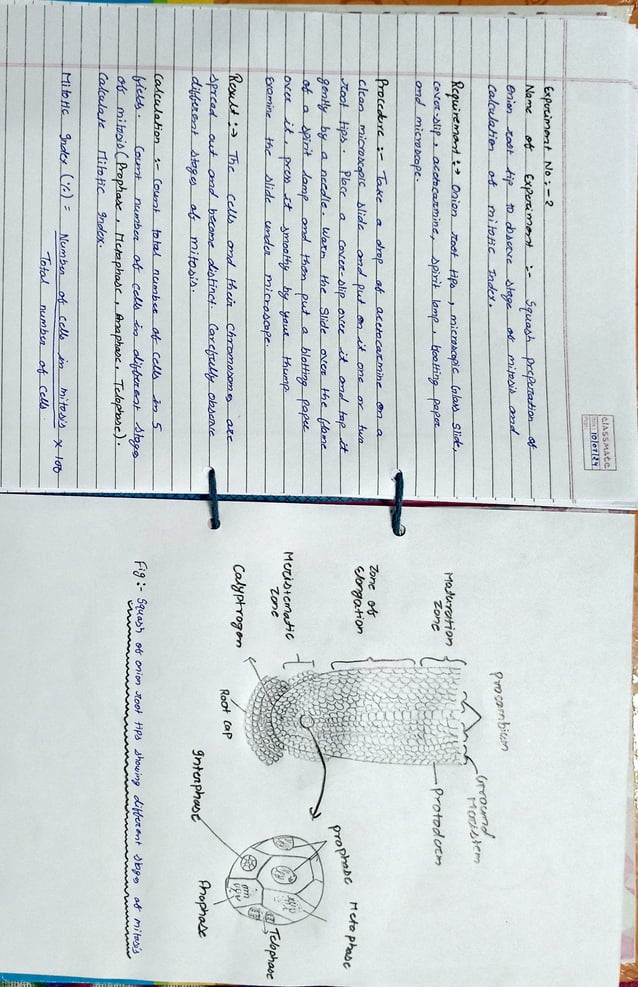 classmate
Date 10/07/24
Experiment No:- 2
Name of Experiment :- Squash preparation of
onion root tip to observe stage of mitosis and
calculation of mitotic Index.
Requirement :→ Onion root tips, microscopic Glass Slide,
cover-slip, acetocarmine, spirit lamp, bloating paper
and microscope.
Procedure :- Take a drop of acetocarmine on a
clean microscopic slide and put on it one or two
root tips. Place a cover-slip over it and tap it
gently by a needle. Warm the Slide over the flame
of a spirit lamp and then put a blotting paper
over it, press it smoothly by your thump.
Examine the slide under microscope.
Result :→ The cells and their chromosomes are
spread out and become distinct. Carefully observe
different stages of mitosis.
Calculation :- Count total number of cells in 5
fields. Count number of cells in different stage
of mitosis (Prophase, Metaphase, Anaphase, Telophase).
Calculate Mitotic Index.
Mitotic Index (%) = Number of cells in mitosis x 100
Total number of cells
Procambium
Ground Meristem
Maturation zone
Protoderm
Zone of elongation
Meristematic zone
Calyptrogen
Root cap
prophase
Metaphase
Interphase
Anaphase
Telophase
Fig:- Squash of onion root tips showing different stage of mitosis